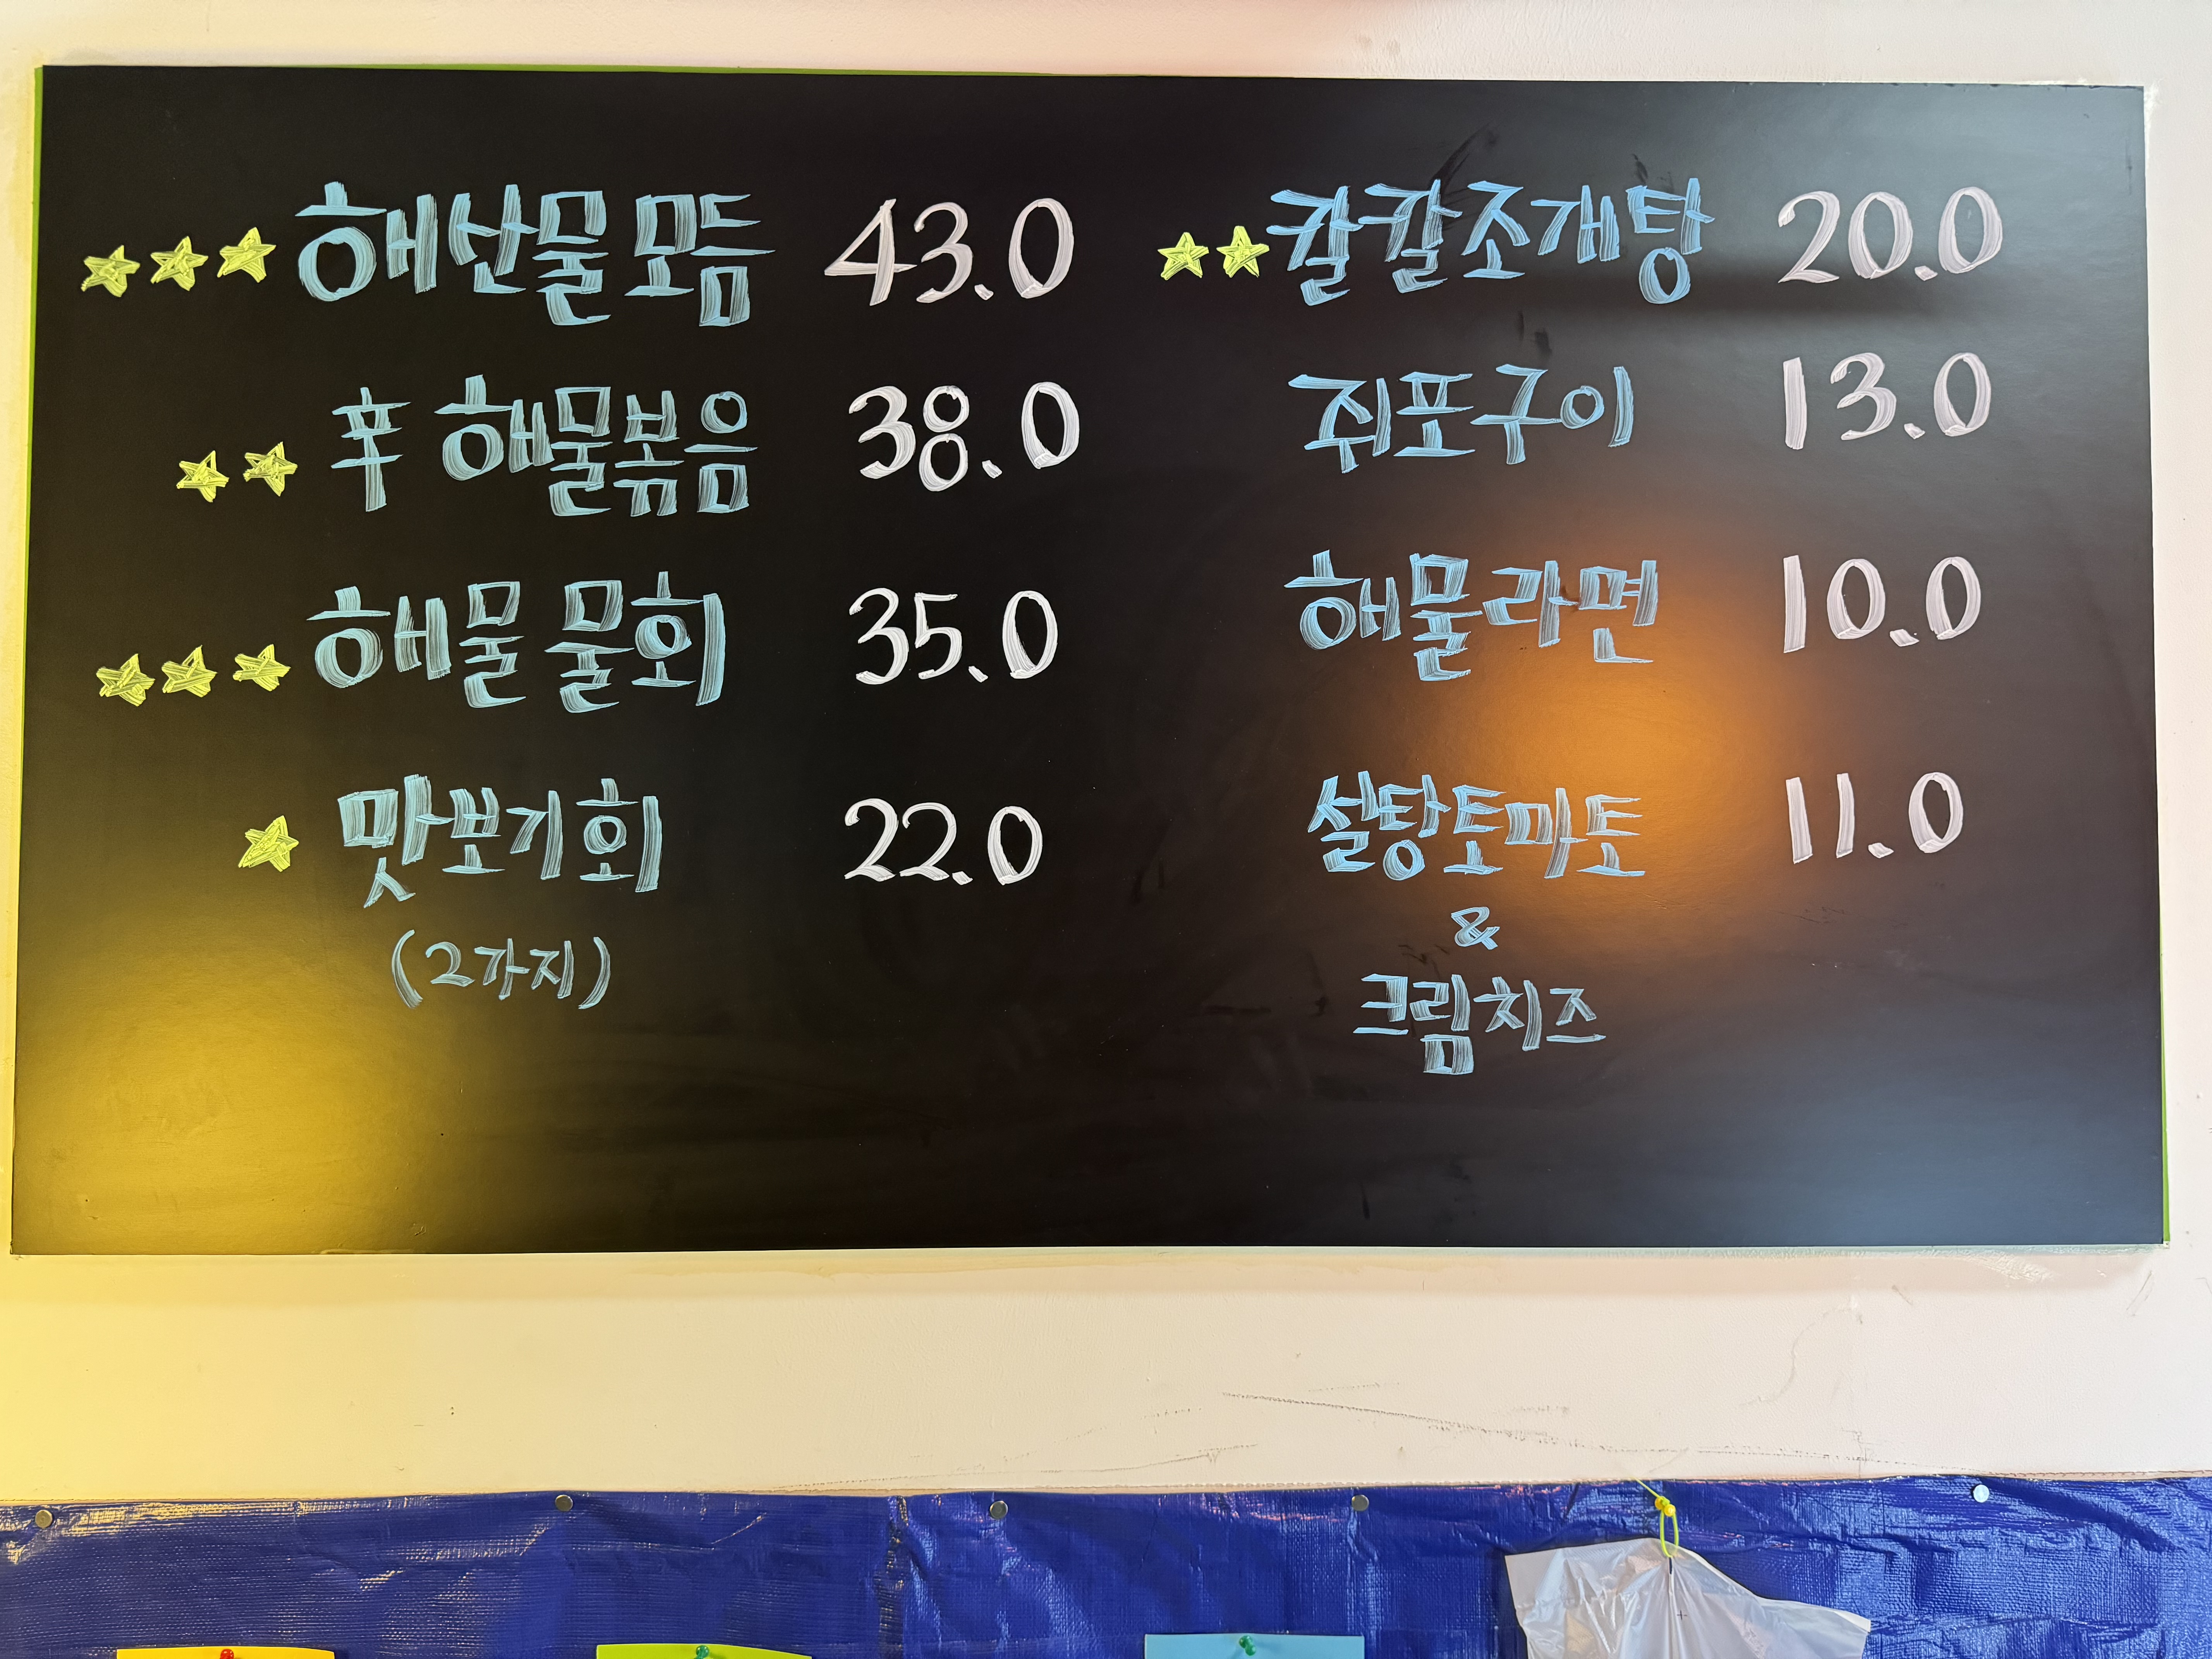 ★★★ 해산물모듬 43.0
★★ 辛 해물볶음 38.0
★★★ 해물 물회 35.0
★ 맛보기회 22.0
(2가지)
★★ 칼칼조개탕 20.0
쥐포구이 13.0
해물라면 10.0
설탕토마토 11.0
&
크림치즈